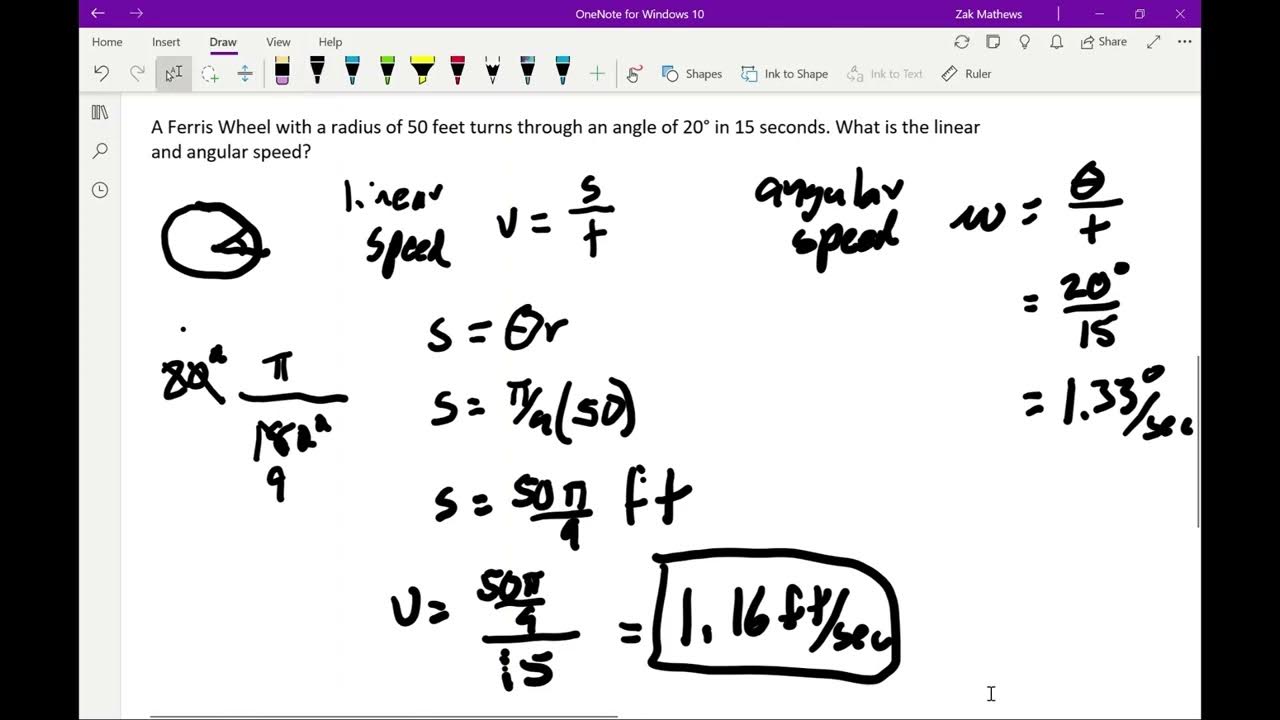 OneNote for Windows 10
Zak Mathews
Home Insert Draw View Help
Share
Shapes Ink to Shape Ink to Text Ruler
A Ferris Wheel with a radius of 50 feet turns through an angle of 20° in 15 seconds. What is the linear
and angular speed?
linear speed
v = s/t
s = θr
s = π/9(50)
s = 50π/9 ft
v = 50π/9/15 = 1.16 ft/sec
angular speed
w = θ/t
= 20°/15
= 1.33°/sec
π
180°
9